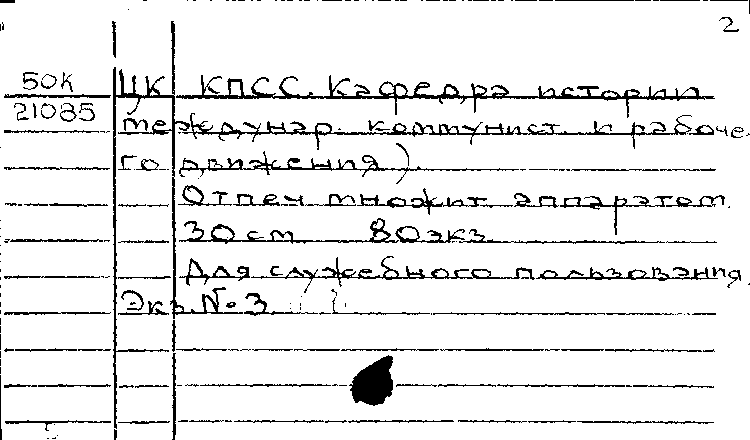 2
50К ЦК КПСС. Кафедра истории
21085 междунар. коммунист. и рабоче-
го движения).
Отпеч множит. аппаратом
30 см 80 экз.
Для служебного пользования.
Экз. № 3